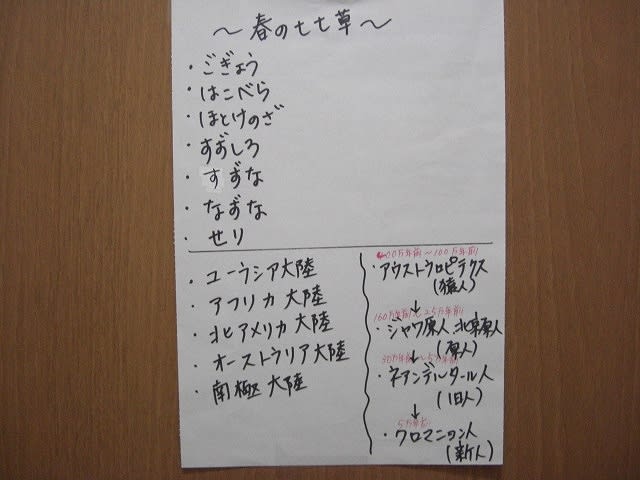 〜春の七七草〜
・ごぎょう
・はこべら
・ほとけのざ
・すずしろ
・すずな
・なずな
・せり
・ユーラシア大陸
・アフリカ大陸
・北アメリカ大陸
・オーストウリア大陸
・南極大陸
00万年前〜100万年前
・アウストウロピテクス
(猿人)
↓
万年前〜25万年前
・ジャワ原人、北京原人
(原人)
↓
30万年前〜5万年前
・ネアンデルタール人
(旧人)
↓
5万年前
・クロマニヨン人
(新人)